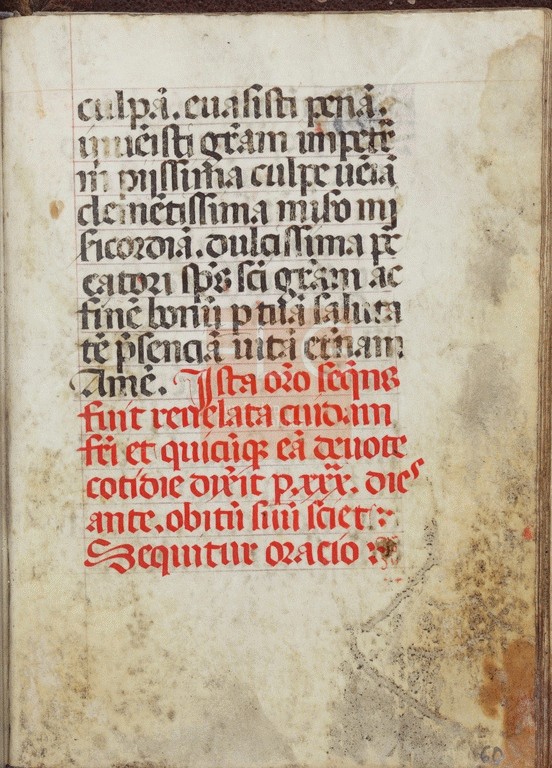 culpã. euasisti penã.
inuẽisti gr̃am impetr̃
m pijssima culpe ueiã
clemẽtissima miẞo mi
sicordiã. dulcissima pc
catori sp̃s sc̃i gr̃am ac
finẽ bonũ p tuã saluta
tẽ p̃senciã uitã et̃nam
Amẽ. Ista or̃o seq̃ns
fuit reuelata cuidam
fr̃i et quicũq̃ eã deuote
cotidie dix̃it p. xxx. dies
ante. obitũ suũ sciet :~
Sequitur oracio :~
60